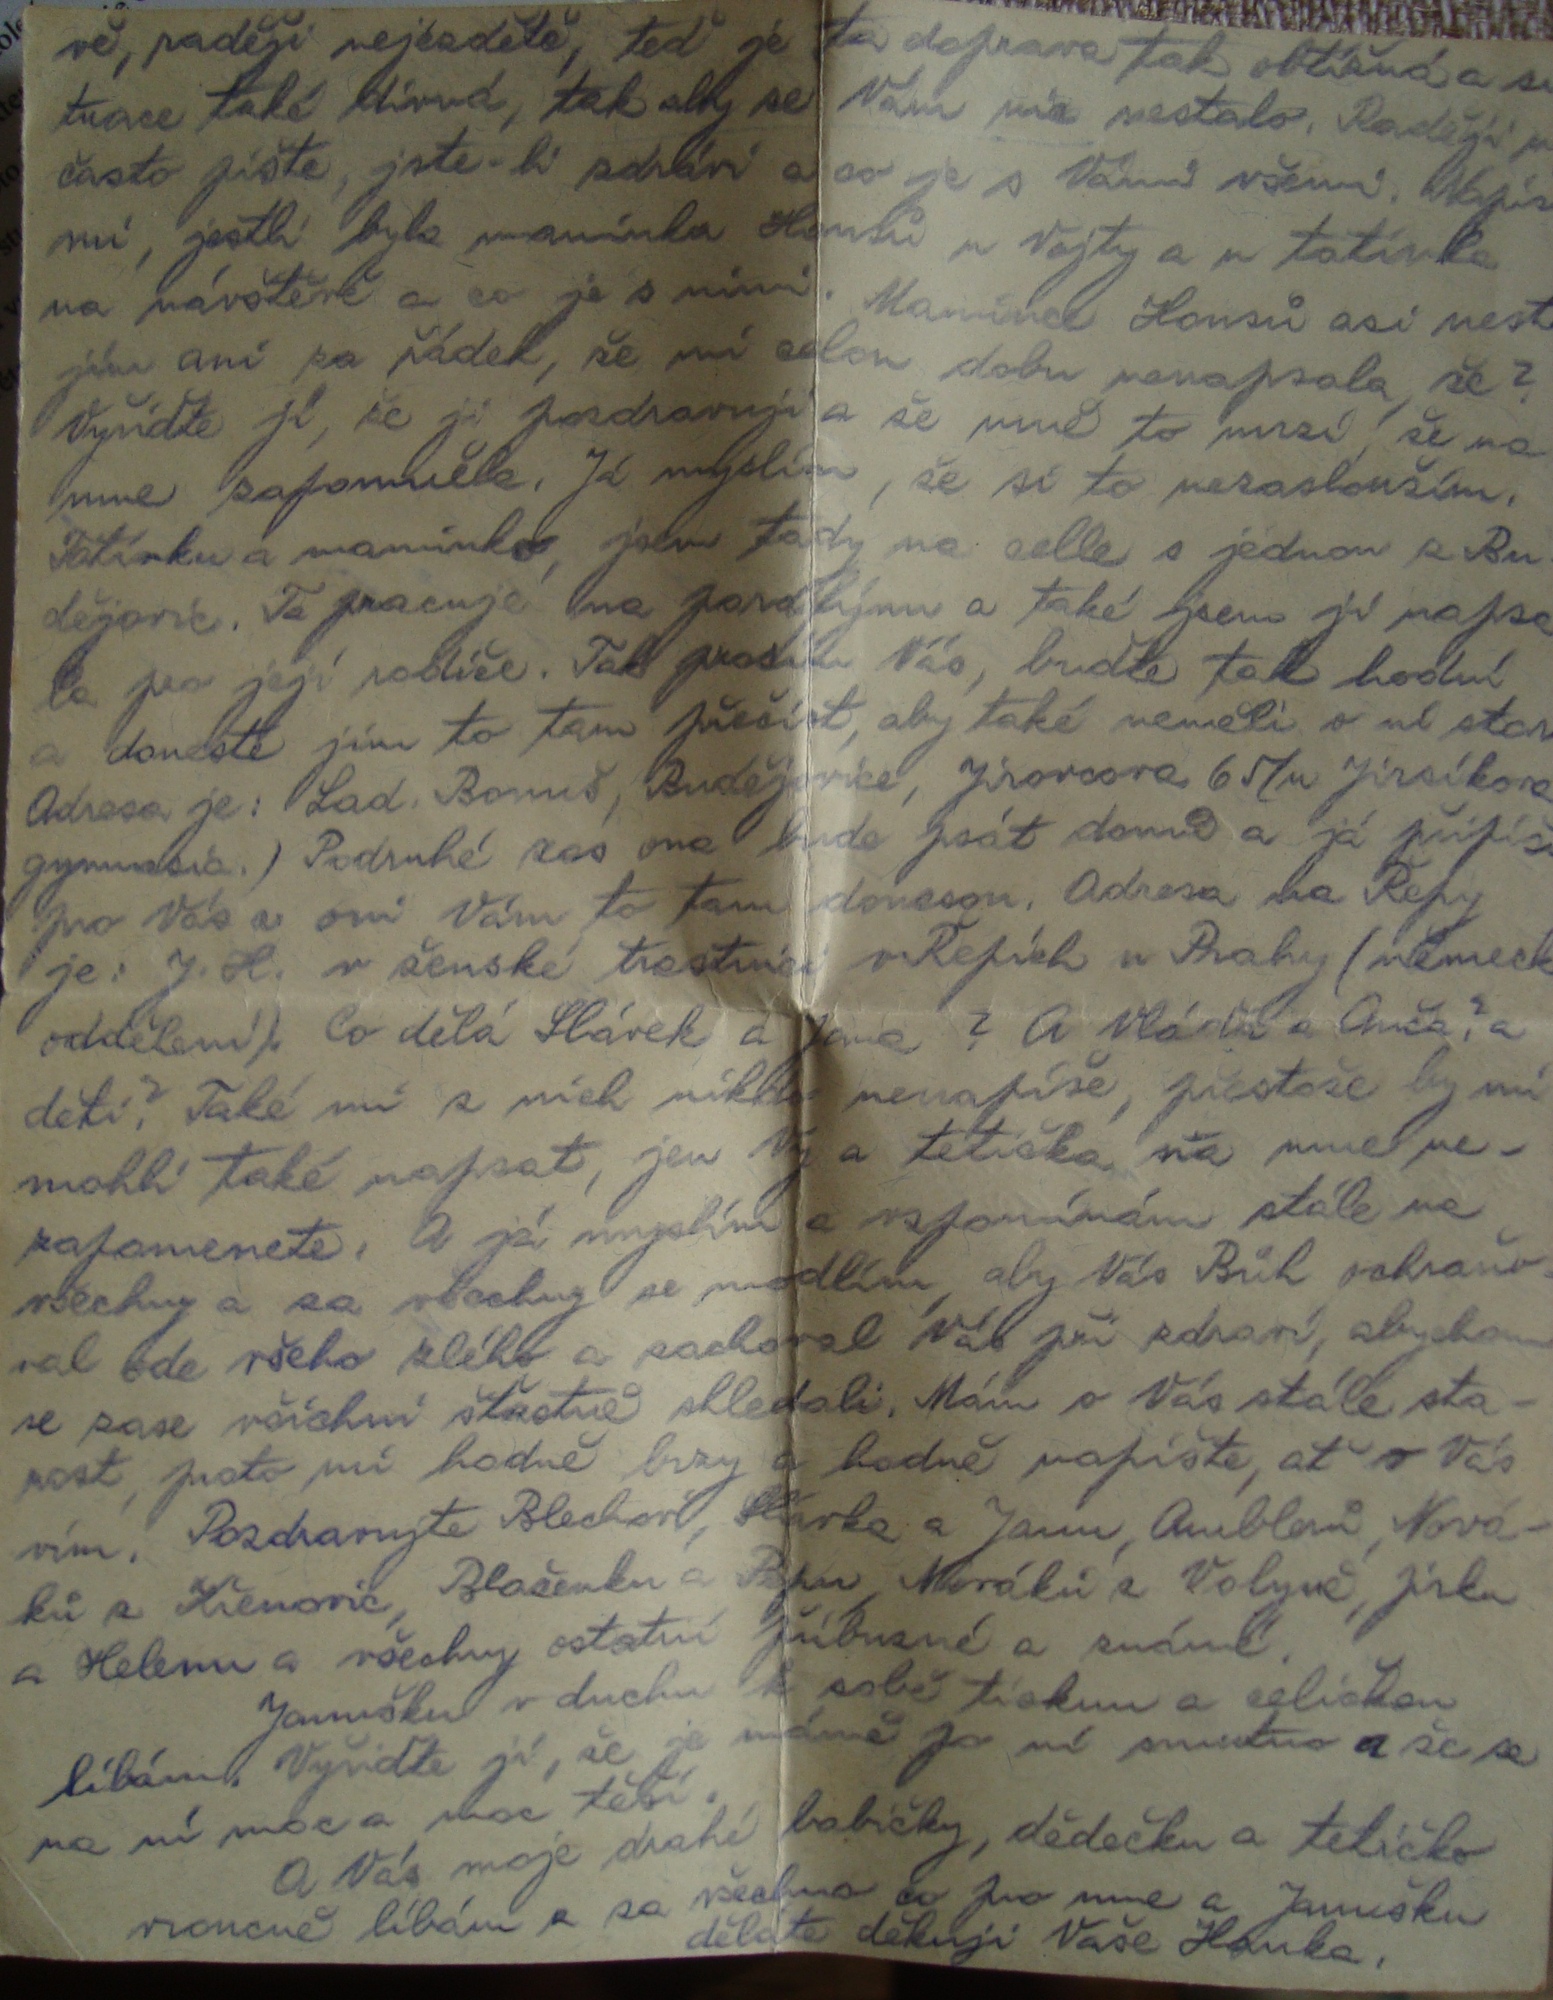 vě, raději nejezděte, teď je ta doprava tak obtížná a si
tuace také divná, tak aby se Vám nic nestalo. Raději m
často pište, jste-li zdrávi a co je s Vámi všemi. Napiš
mi, jestli byla maminka Honsů u Vojty a u tatínka
na návštěvě a co je s nimi. Mamince Honsů asi nest
jím ani za řádek, že mi celou dobu nenapsala, že?
Vyřiďte jí, že ji pozdravuji a že mně to mrzí, že na
mne zapomněla. Já myslím, že si to nezasloužím.
Tatínku a maminko, jsem tady na celle s jednou z Bu-
dějovic. Ta pracuje na parolijnu a také jsem jí napsa
la pro její rodiče. Tak prosím Vás, buďte tak hodní
a doneste jim to tam přečíst, aby také neměli o ní star
Adresa je: Lad. Bonuš, Budějovice, Jírovcova 65/u Jirsíkova
gymnasia.) Podruhé zas ona bude psát domů a já připíši
pro Vás a oni Vám to tam donesou. Adresa na Řepy
je: J. H. v ženské trestnici v Řepích u Prahy (německ
oddělení). Co dělá Slávek a Jana? A Vláďa a Anča? a
děti? Také mi z nich nikdo nenapíše, přestože by mi
mohli také napsat, jen Vy a tetička na mne ne-
zapomenete. A já myslím a vzpomínám stále na
všechny a za všechny se modlím, aby Vás Bůh ochraňo-
val ode všeho zlého a zachoval Vás při zdraví, abychom
se zase všichni šťastně shledali. Mám o Vás stále sta-
rost, proto mi hodně brzy a hodně napište, ať o Vás
vím. Pozdravujte Blechovi, Slávka a Janu, Amblerů, Nová-
ků z Křenovic, Blaženku a Pepu, Nováků z Volyně, Jirku
a Helenu a všechny ostatní příbuzné a známé.
Janušku v duchu k sobě tisknu a celičkou
líbám. Vyřiďte jí, že je mámě po ní smutno a že se
na ní moc a moc těší.
A Vás moje drahé babičky, dědečku a tetičko
vroucně líbám a za všechno co pro mne a Janušku
děláte děkuji Vaše Honka.